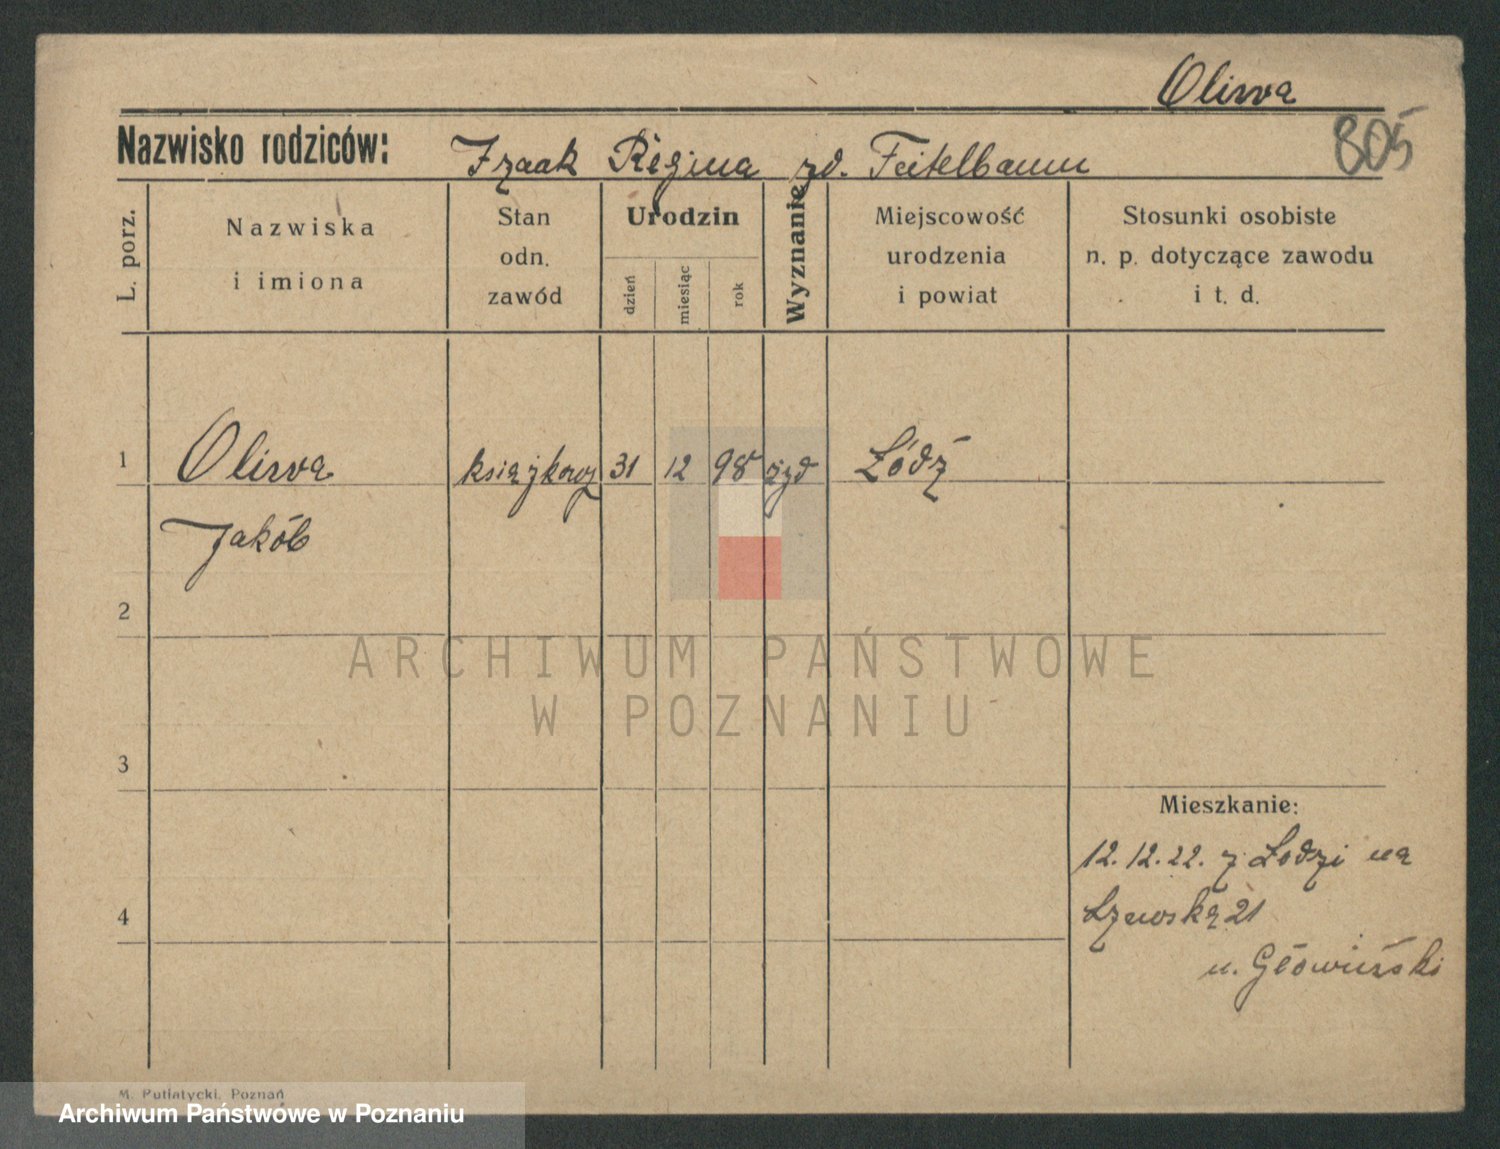 Oliwa
805
Nazwisko rodziców: Izaak Regina zd. Feitelbaum
L. porz.
Nazwiska
i imiona
Stan
odn.
zawód
Urodzin
dzień
miesiąc
rok
Wyznanie
Miejscowość
urodzenia
i powiat
Stosunki osobiste
n. p. dotyczące zawodu
i t. d.
1 Oliwa książkowy 31 12 98 żyd Łódź
Jakób
2
ARCHIWUM PAŃSTWOWE
W POZNANIU
3
Mieszkanie:
12.12.22. z Łodzi na
21
4
u. Głowiński
M. Putiatycki, Poznań
Archiwum Państwowe w Poznaniu